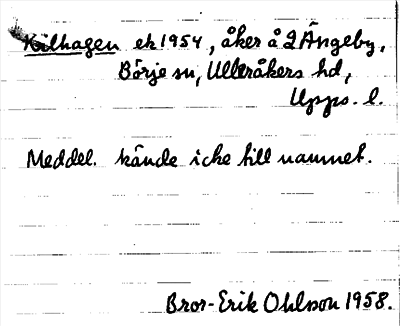 Kilhagen ek 1954, åker å 2 Ängeby,
Börje sn, Ulleråkers hd,
Upps. l.
Meddel. kände icke till namnet.
Bror-Erik Ohlsson 1958.